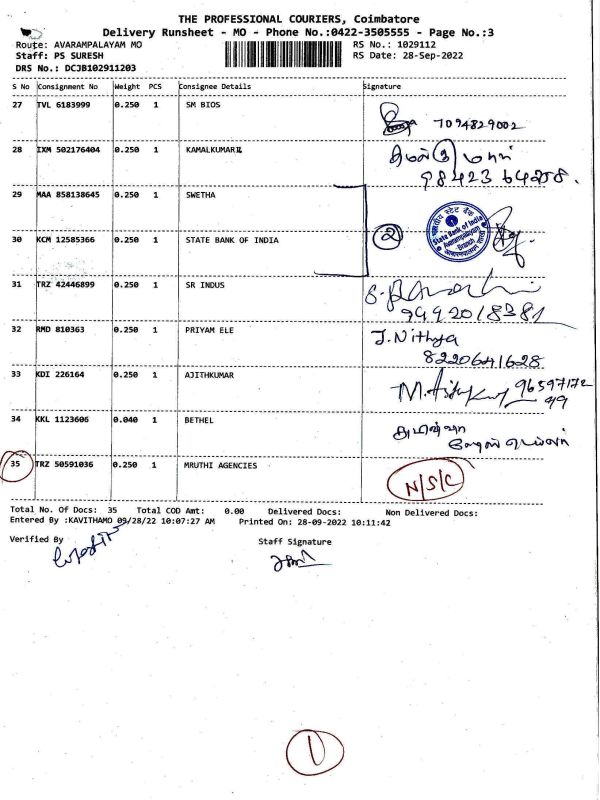 THE PROFESSIONAL COURIERS, Coimbatore
Delivery Runsheet - MO - Phone No.:0422-3505555 - Page No.:3
Route: AVARAMPALAYAM MO RS No.: 1029112
Staff: PS SURESH RS Date: 28-Sep-2022
DRS No.: DCJB102911203
S No Consignment No Weight PCS Consignee Details Signature
27 TVL 6183999 0.250 1 SM BIOS
7094829002
28 IXM 502176404 0.250 1 KAMALKUMAR
29 MAA 858138645 0.250 1 SWETHA
30 KCM 12585366 0.250 1 STATE BANK OF INDIA 2
भारतीय स्टेट बैंक
State Bank of India
Branch
31 TRZ 42446899 0.250 1 SR INDUS
32 RMD 810363 0.250 1 PRIYAM ELE J. Nithya
8220641628
33 KDI 226164 0.250 1 AJITHKUMAR
9659717299
34 KKL 1123606 0.040 1 BETHEL
35 TRZ 50591036 0.250 1 MRUTHI AGENCIES N/S/C
Total No. Of Docs: 35 Total COD Amt: 0.00 Delivered Docs: Non Delivered Docs:
Entered By :KAVITHAMO 09/28/22 10:07:27 AM Printed On: 28-09-2022 10:11:42
Verified By Staff Signature
1